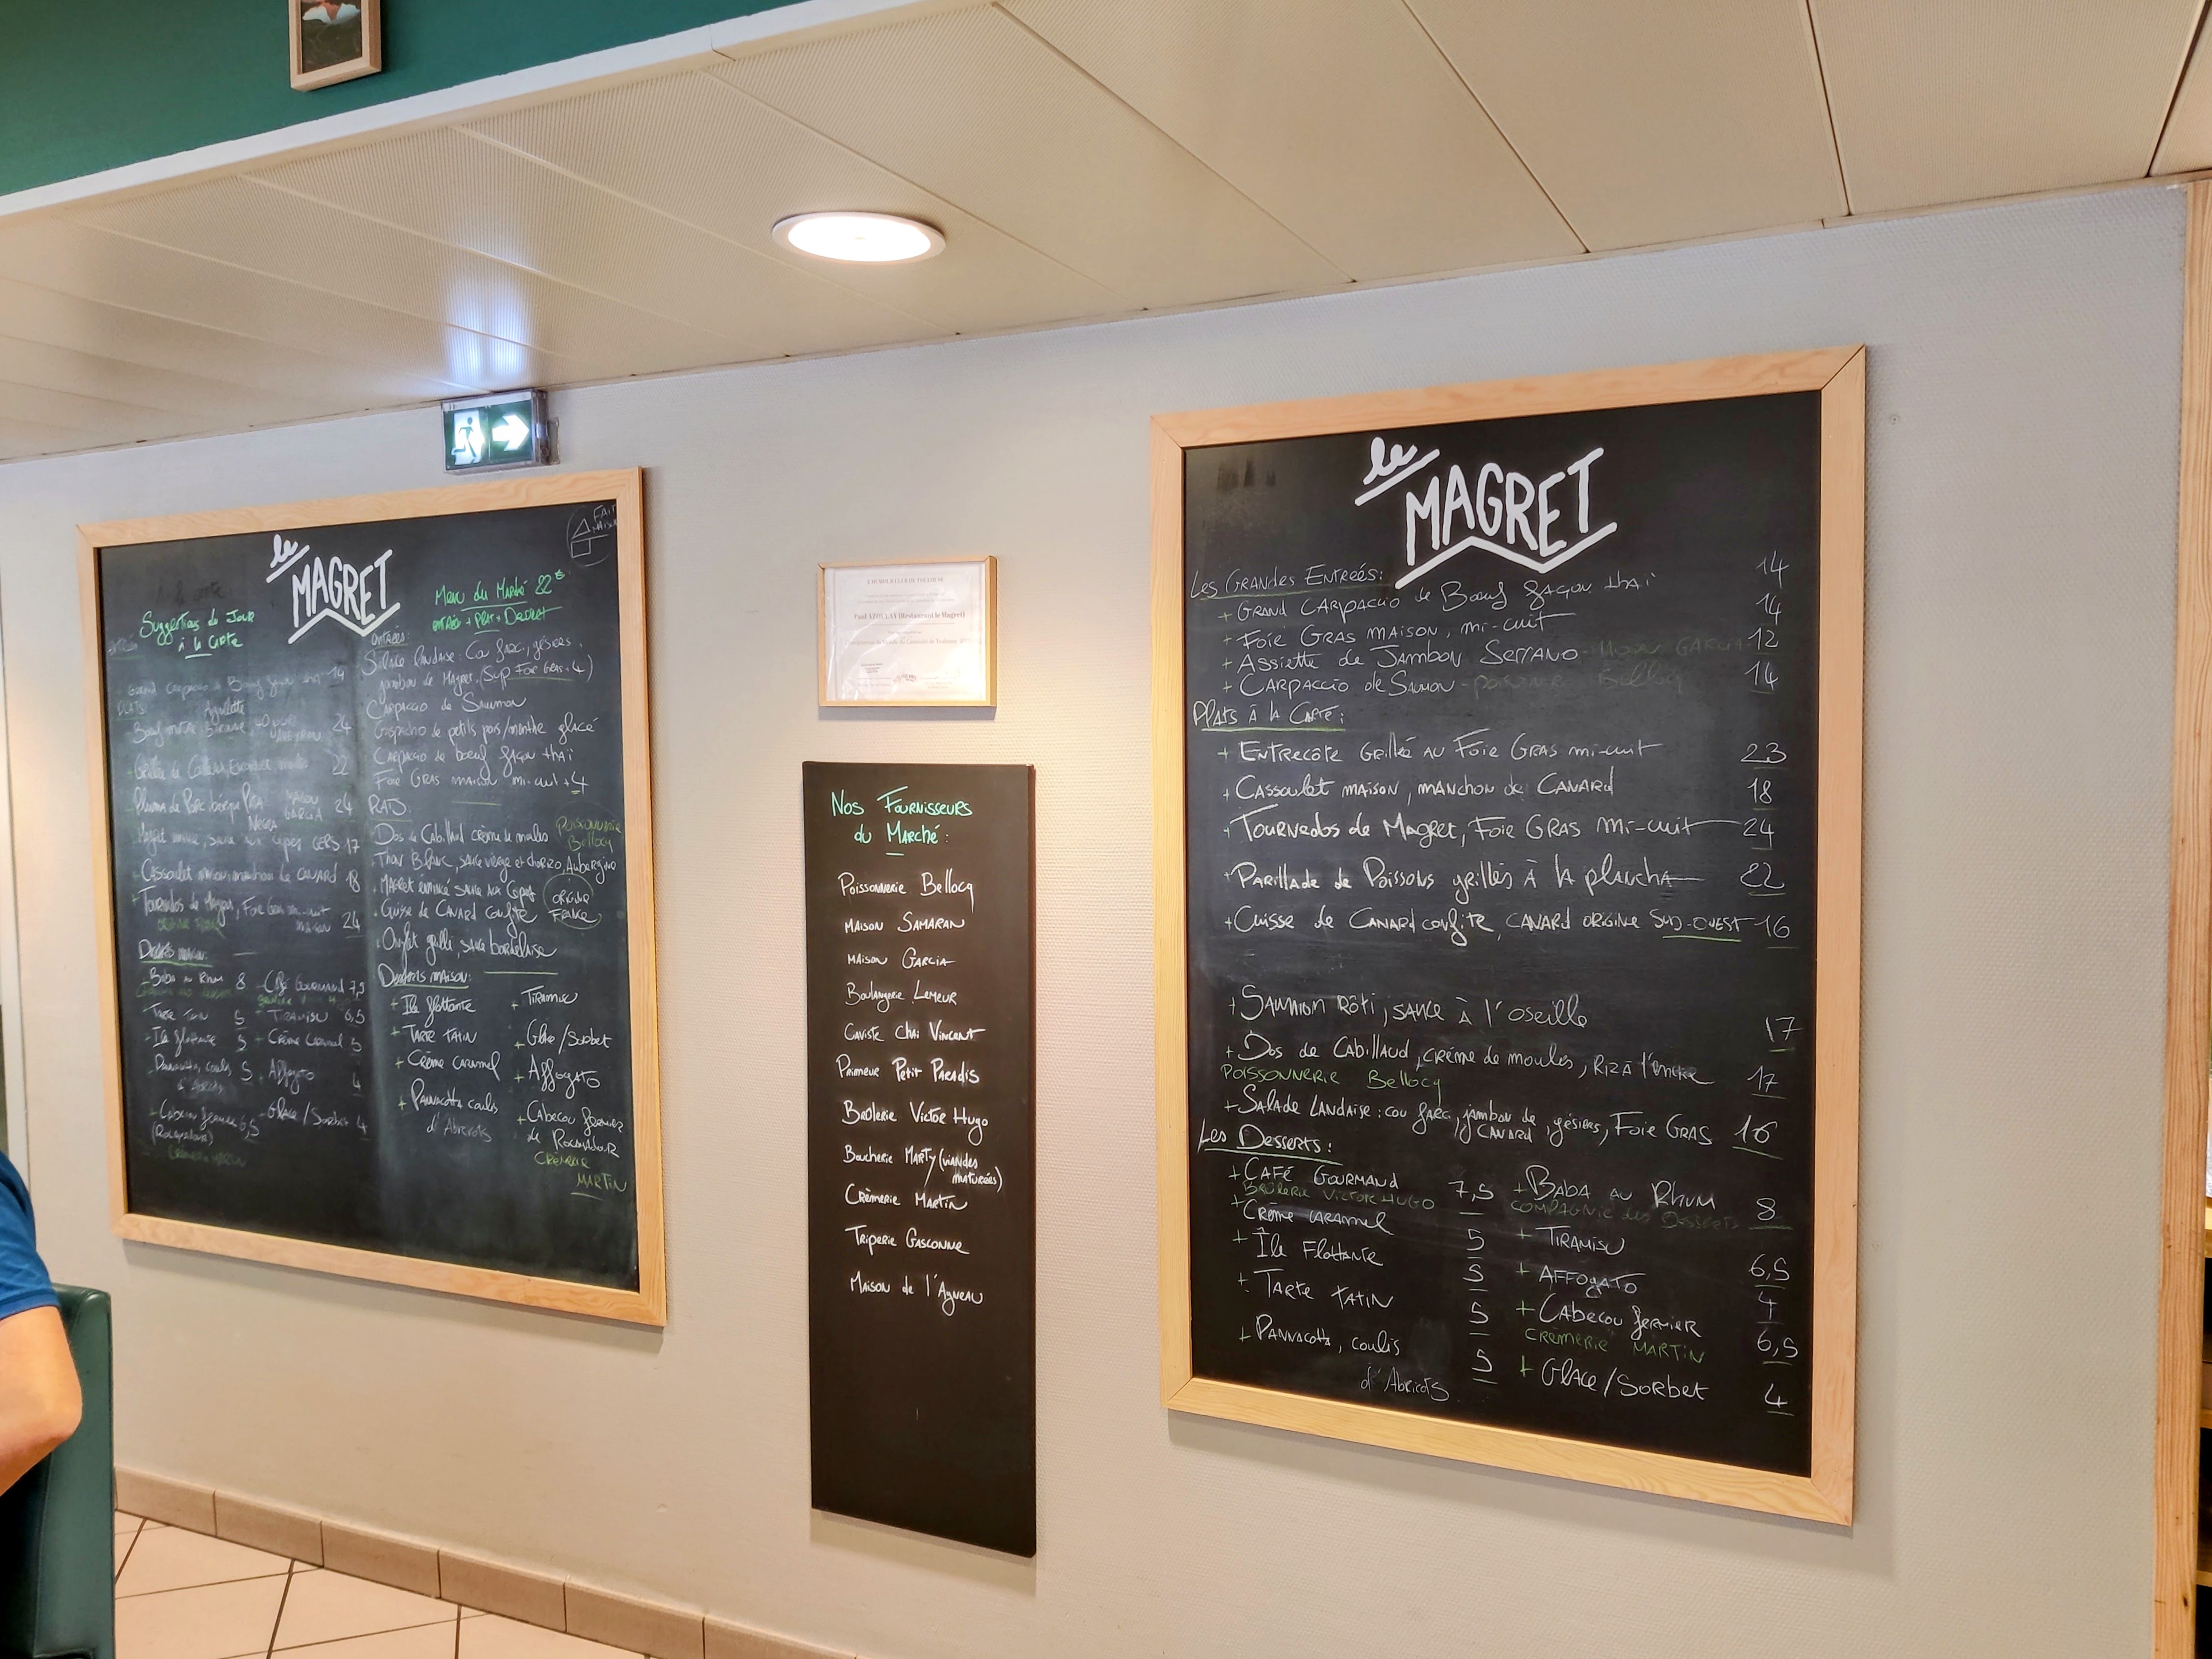 le
MAGRET
FAIT
MAISON
Suggestions du Jour
à la Carte
Grand Carpaccio de Boeuf façon thaï 14
PLATS:
24
22
Pluma de Porc ibérique PATA
NEGRA
MAISON
GARCIA
24
17
Cassoulet maison, manchon de canard 18
Tournedos de Magret, Foie Gras mi-cuit
MAISON
24
Desserts maison:
Baba au Rhum 8
Café Gourmand 7,5
Tarte Tatin 5
Tiramisu 6,5
Île flottante 5
Crème Caramel 5
Pannacotta, coulis 5
d'Abricots
Affogato 4
Cabecou fermier 6,5
(Rocamadour)
Glace/Sorbet 4
Menu du Marché 22€
ENTRÉE + PLAT + DESSERT
ENTRÉES:
Salade landaise: Cou farci, gésiers,
jambon de Magret, (Sup Foie Gras + 4)
Carpaccio de Saumon
Gaspacho de petits pois/menthe glacé
Carpaccio de boeuf façon thaï
Foie GRAS maison mi-cuit + 4
PLATS:
Dos de Cabillaud crème de moules
POISSONNERIE
Bellocq
Thon Blanc, sauce vierge et chorizo, Aubergine
Magret entier sauce aux Cèpes
Cuisse de CANARD confite
ORIGINE
FRANCE
Onglet grillé, sauce bordelaise
Desserts maison:
+ Île flottante
+ Tiramisu
+ TARTE TATIN
+ Glace/Sorbet
+ Crème caramel
+ Affogato
+ Pannacotta coulis
d'Abricots
+ Cabecou fermier
de Rocamadour
CRÈMERIE
MARTIN
Paul AZOULAY (Restaurant le Magret)
Nos Fournisseurs
du Marché:
Poissonnerie Bellocq
MAISON SAMARAN
MAISON GARCIA
Boulangerie Lemeur
Caviste Chai Vincent
Primeur Petit Paradis
Brûlerie Victor Hugo
Boucherie MARTY (viandes
maturées)
Crèmerie Martin
Triperie Gasconne
Maison de l'Agneau
le
MAGRET
Les Grandes Entreés:
+ GRAND CARPACCIO de Boeuf façon thaï 14
+ Foie GRAS maison, mi-cuit 14
+ Assiette de Jambon Serrano - MAISON GARCIA 12
+ CARPACCIO de Saumon - poissonnerie Bellocq 14
Plats à la Carte:
+ Entrecôte Grillée au Foie GRAS mi-cuit 23
+ Cassoulet maison, manchon de CANARD 18
+ Tournedos de Magret, Foie GRAS mi-cuit 24
+ Parillade de Poissons grillés à la plancha 22
+ Cuisse de CANARD confite, CANARD ORIGINE SUD-OUEST 16
+ Saumon Rôti, sauce à l'oseille 17
+ Dos de Cabillaud, crème de moules, Riz à l'encre 17
POISSONNERIE Bellocq
+ Salade LANDAISE: cou farci, jambon de
CANARD, gésiers, Foie GRAS 16
Les Desserts:
+ CAFÉ GOURMAND 7,5
BRÛLERIE VICTOR HUGO
+ Crème caramel 5
+ Île Flottante 5
+ Tarte TATIN 5
+ Pannacotta, coulis 5
d'Abricots
+ Baba au Rhum 8
COMPAGNIE des Desserts
+ TIRAMISU 6,5
+ AFFOGATO 4
+ Cabecou fermier 6,5
CRÈMERIE MARTIN
+ Glace/Sorbet 4